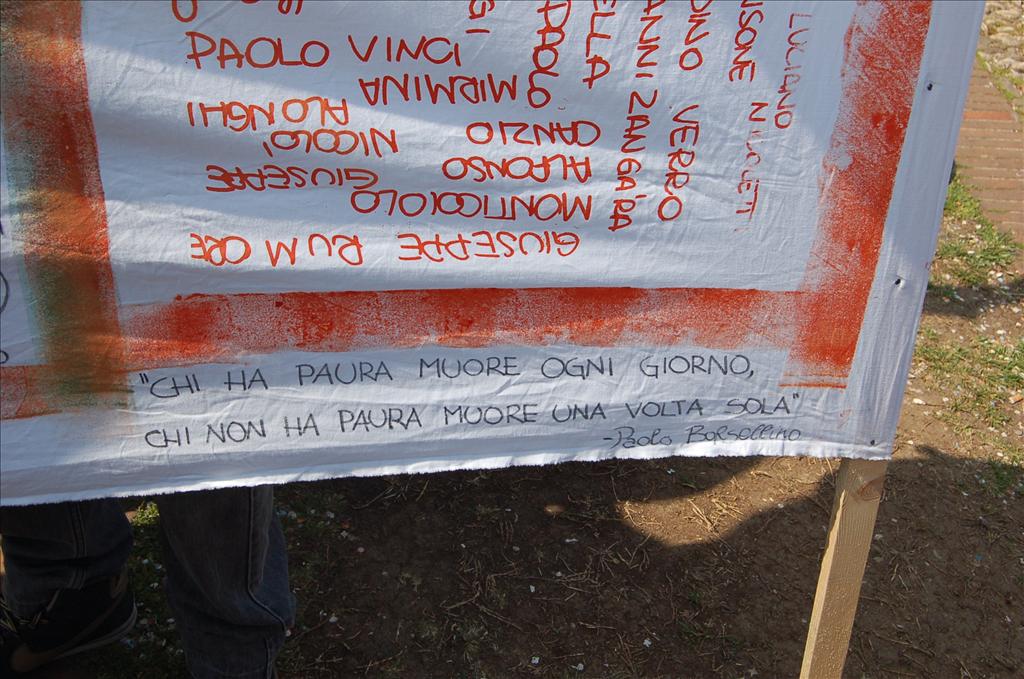 PAOLO VINCI
MIRMINA
ALONGHI
NICOLÒ
CANZIO
ALFONSO
GIUSEPPE
MONTICCIOLO
GIUSEPPE RUMORE
PAOLO
ELLA
ANNI ZANGÀRA
DINO VERRO
LUCIANO
"CHI HA PAURA MUORE OGNI GIORNO,
CHI NON HA PAURA MUORE UNA VOLTA SOLA"
-Paolo Borsellino